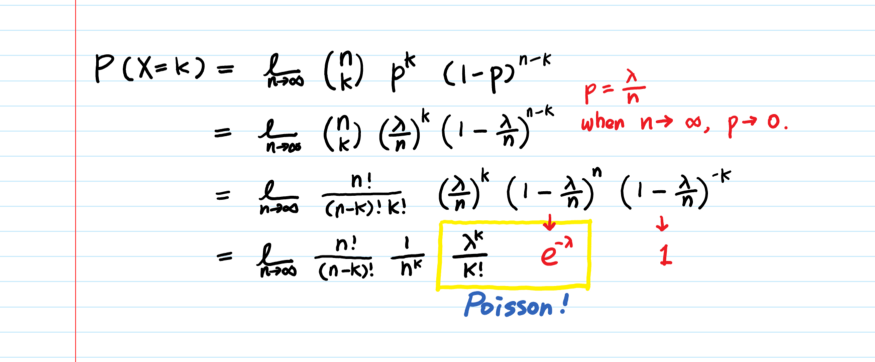 P(X=k) = lim n→∞ (n k) p^k (1-p)^{n-k}
p = λ/n
when n→ ∞, p→ 0.
= lim n→∞ (n k) (λ/n)^k (1 - λ/n)^{n-k}
= lim n→∞ n!/((n-k)! k!) (λ/n)^k (1 - λ/n)^n (1 - λ/n)^{-k}
↓ ↓
= lim n→∞ n!/(n-k)! 1/n^k λ^k/k! e^{-λ} 1
Poisson!